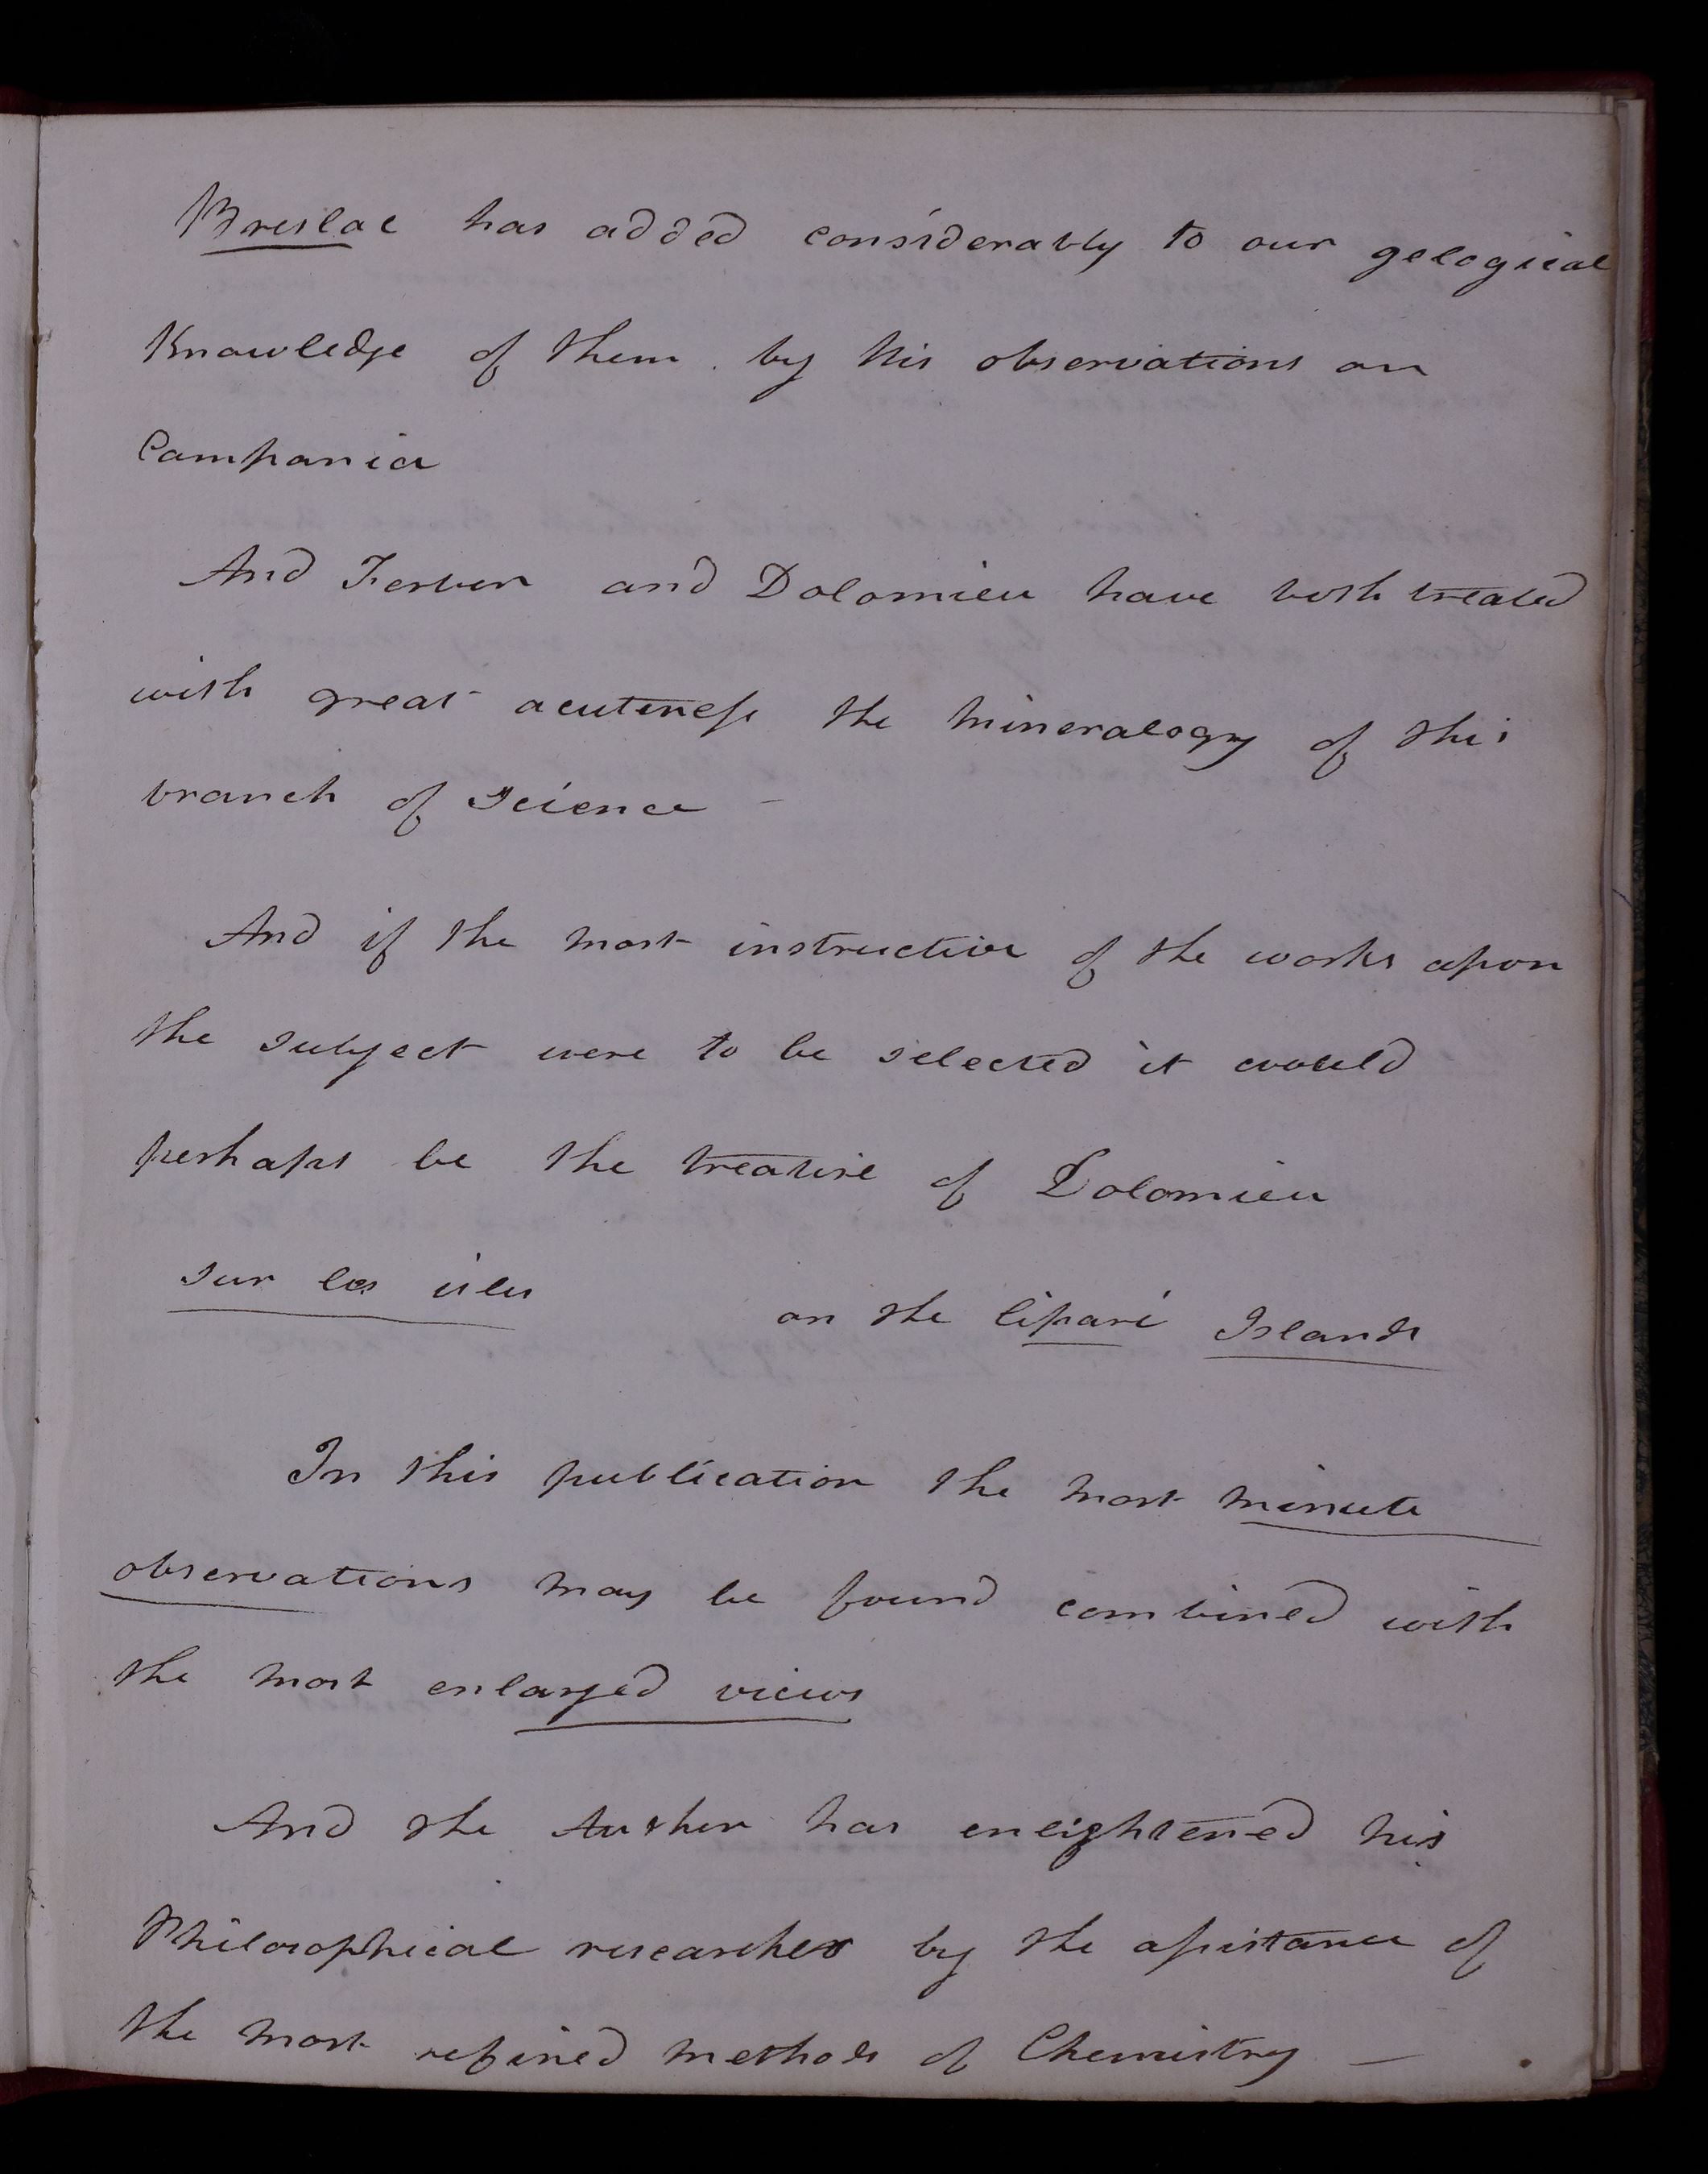 Breslac has added considerably to our gelogical
Knowledge of them. by his observations on
Campania
And Ferber and Dolomieu have both treated
with great acuteness the Mineralogy of this
branch of Science –
And if the most instructive of the works upon
the subject were to be selected it would
perhaps be the treatise of Dolomieu
sur les isles on the lipari Islands
In this publication the most minute
observations may be found combined with
the most enlarged views
And the Author has enlightened his
Philosophical researches by the assistance of
the most refined methods of Chemistry — .